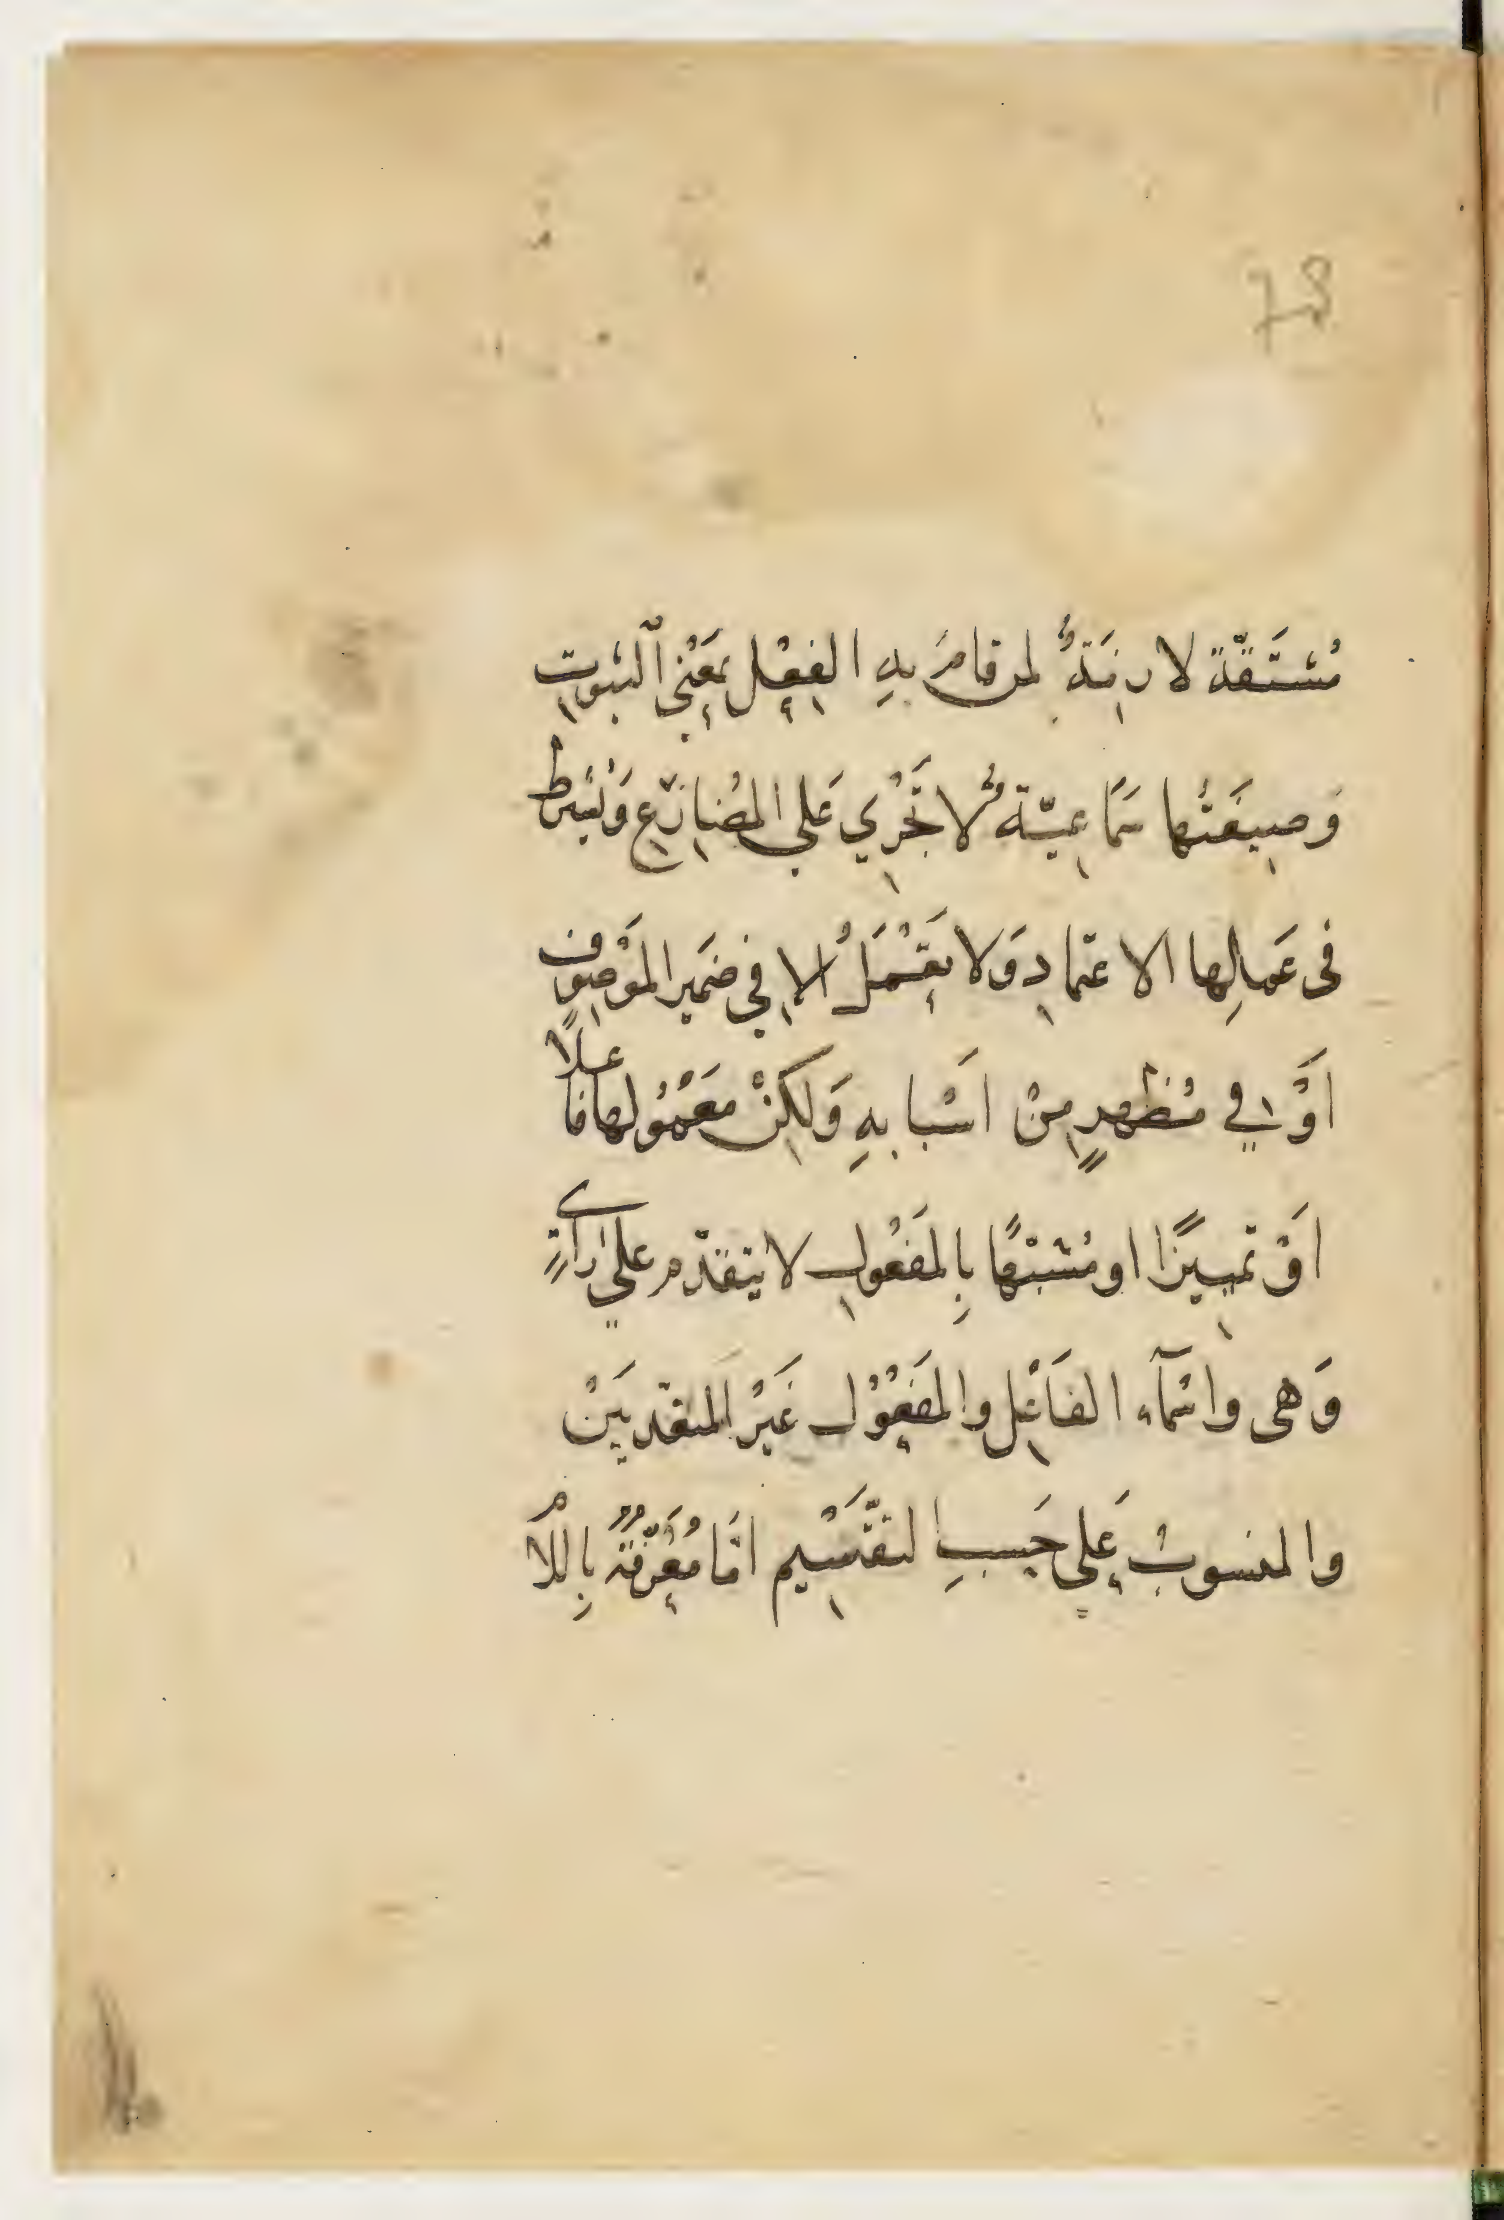 78
مُشْتَقَّةٌ لازِمَةٌ لمن قامَ بِهِ الفِعْلُ بمَعْنَى الثبوت
وَصِيغَتُها سَمَاعِيَّةٌ لا تَجْرِي عَلَى المُضارِع وَيُشْتَرط
فى عَمَلِها الاعتماد وَلا تعْمَلُ الا في ضَمير المَوْصوف
اوْ في مُظهرٍ مِنْ اَسْبابِهِ وَلكِنْ مَعْمُولها فاعلًا
اوْ تمييزًا او مُشبّهًا بِالمَفعُولِ لا يتقدّم على اداةٍ
وَهى واسْمآء الفاعِل والمَفعُوْل غَيْر المتعدّيَيْن
والمنسوب عَلى حَسبِ التقْسِيم امّا مُعَرَّفَةٌ بِاللام